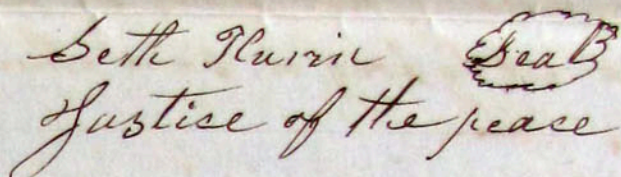 Seth Seal
Justice of the peace